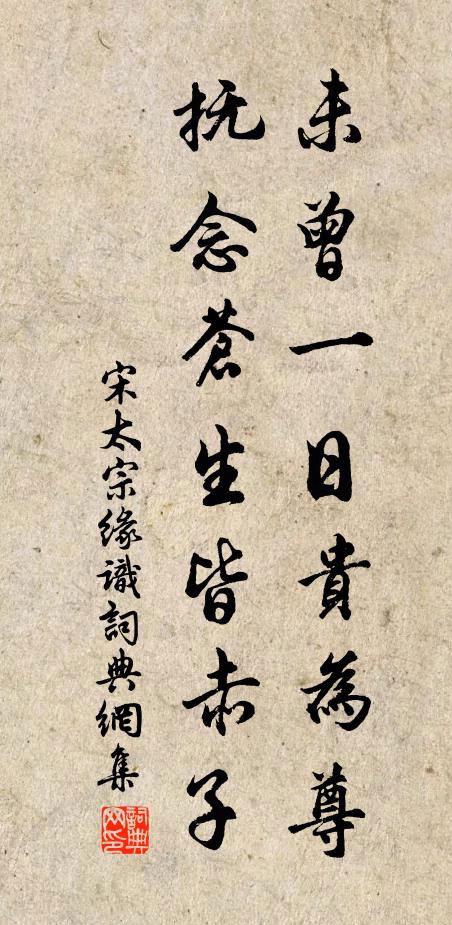 未曾一日貴為尊
抚念蒼生皆赤子
宋太宗緣識詞典網集
詞典网印